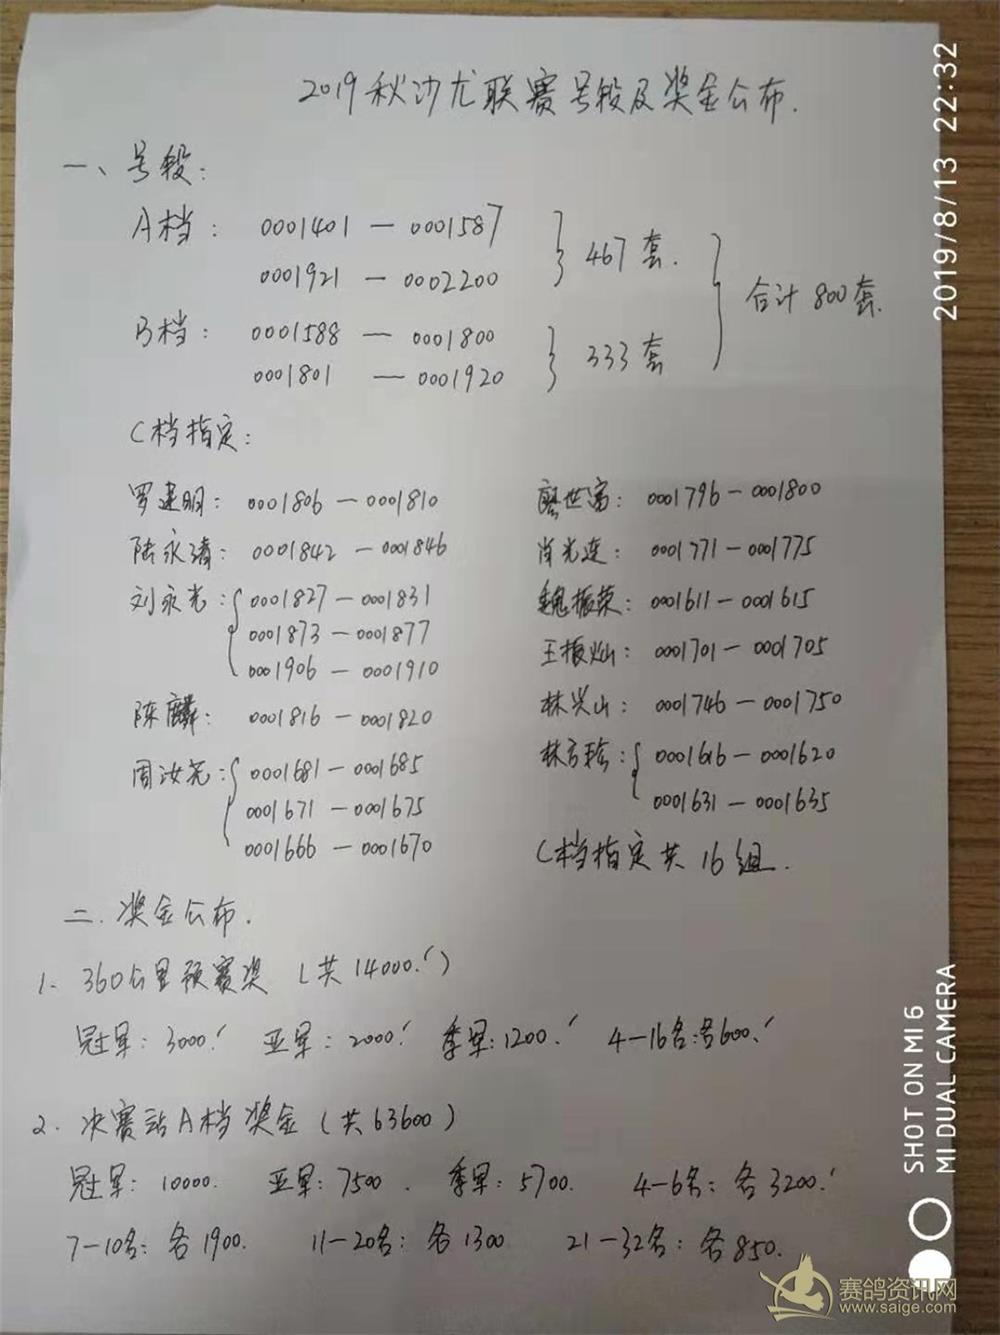 2019秋沙龙联赛号段及奖金公布.
一、号段:
A档: 0001401 — 0001587
0001921 — 0002200
467套.
B档: 0001588 — 0001800
0001801 — 0001920
333套
合计800套.
C档指定:
罗建明: 0001806 — 0001810
陆永清: 0001842 — 0001846
刘永光: 0001827 — 0001831
0001873 — 0001877
0001906 — 0001910
陈麟: 0001816 — 0001820
周汝尧: 0001681 — 0001685
0001671 — 0001675
0001666 — 0001670
廖世富: 0001796 — 0001800
肖光连: 0001771 — 0001775
魏振荣: 0001611 — 0001615
王振灿: 0001701 — 0001705
林兴山: 0001746 — 0001750
林方珍: 0001616 — 0001620
0001631 — 0001635
C档指定共16组.
二.奖金公布.
1. 360公里预赛奖 (共14000.)
冠军: 3000. 亚军: 2000. 季军: 1200. 4—16名:各600.
2. 决赛站A档奖金 (共63600)
冠军: 10000. 亚军: 7500. 季军: 5700. 4—6名: 各3200.
7—10名: 各1900. 11—20名: 各1300 21—32名: 各850.
2019/8/13 22:32
SHOT ON MI 6
MI DUAL CAMERA
赛鸽资讯网
www.saige.com